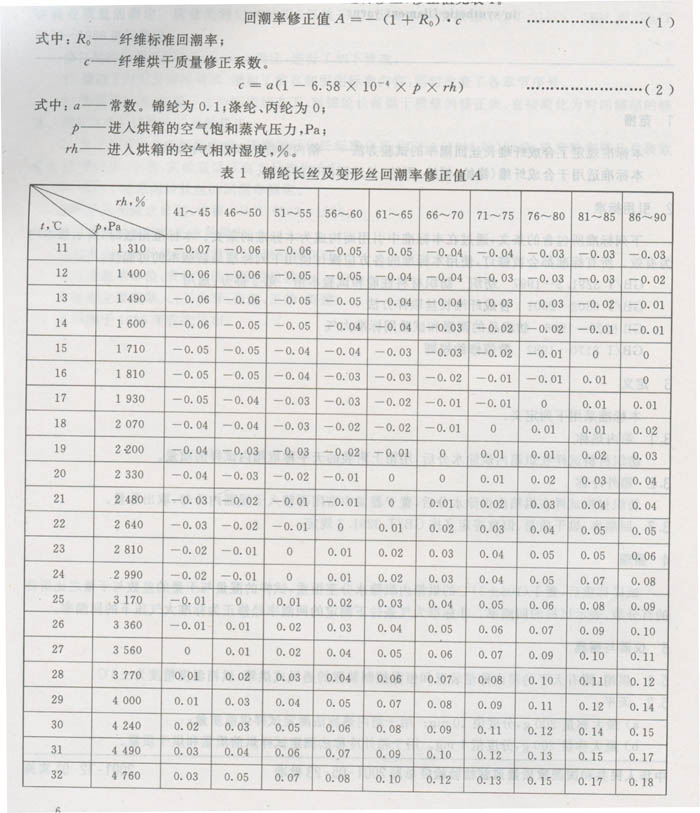 回潮率修正值 A=-(1+R₀)·c ……………………(1)
式中: R₀——纤维标准回潮率;
c——纤维烘干质量修正系数。
c=a(1-6.58×10⁻⁴×p×rh) ……………………(2)
式中: a——常数。锦纶为 0.1;涤纶、丙纶为 0;
p——进入烘箱的空气饱和蒸汽压力,Pa;
rh——进入烘箱的空气相对湿度,%。
表 1 锦纶长丝及变形丝回潮率修正值 A
t,℃ p,Pa rh,% 41~45 46~50 51~55 56~60 61~65 66~70 71~75 76~80 81~85 86~90
11 1 310 -0.07 -0.06 -0.06 -0.05 -0.05 -0.04 -0.04 -0.03 -0.03 -0.03
12 1 400 -0.06 -0.06 -0.05 -0.05 -0.04 -0.04 -0.03 -0.03 -0.03 -0.02
13 1 490 -0.06 -0.06 -0.05 -0.05 -0.04 -0.04 -0.03 -0.03 -0.02 -0.01
14 1 600 -0.06 -0.05 -0.05 -0.04 -0.04 -0.03 -0.02 -0.02 -0.01 -0.01
15 1 710 -0.05 -0.05 -0.04 -0.04 -0.03 -0.03 -0.02 -0.01 0 0
16 1 810 -0.05 -0.05 -0.04 -0.03 -0.03 -0.02 -0.01 -0.01 0.01 0
17 1 930 -0.05 -0.04 -0.03 -0.03 -0.02 -0.01 -0.01 0 0.01 0.01
18 2 070 -0.04 -0.04 -0.03 -0.02 -0.02 -0.01 0 0.01 0.01 0.02
19 2 200 -0.04 -0.03 -0.03 -0.02 -0.01 0 0.01 0.01 0.02 0.03
20 2 330 -0.04 -0.03 -0.02 -0.01 0 0 0.01 0.02 0.03 0.04
21 2 480 -0.03 -0.02 -0.01 -0.01 0 0.01 0.02 0.03 0.04 0.04
22 2 640 -0.03 -0.02 -0.01 0 0.01 0.02 0.03 0.04 0.05 0.05
23 2 810 -0.02 -0.01 0 0.01 0.02 0.03 0.04 0.05 0.05 0.06
24 2 990 -0.02 -0.01 0 0.01 0.02 0.03 0.04 0.05 0.07 0.08
25 3 170 -0.01 0 0.01 0.02 0.03 0.04 0.05 0.06 0.08 0.09
26 3 360 -0.01 0.01 0.02 0.03 0.04 0.05 0.06 0.07 0.09 0.10
27 3 560 0 0.01 0.02 0.04 0.05 0.06 0.07 0.09 0.10 0.11
28 3 770 0.01 0.02 0.03 0.04 0.06 0.07 0.08 0.10 0.11 0.12
29 4 000 0.01 0.03 0.04 0.05 0.07 0.08 0.09 0.11 0.12 0.14
30 4 240 0.02 0.03 0.05 0.06 0.08 0.09 0.11 0.12 0.14 0.15
31 4 490 0.03 0.04 0.06 0.07 0.09 0.10 0.12 0.13 0.15 0.17
32 4 760 0.03 0.05 0.07 0.08 0.10 0.12 0.13 0.15 0.17 0.18
6